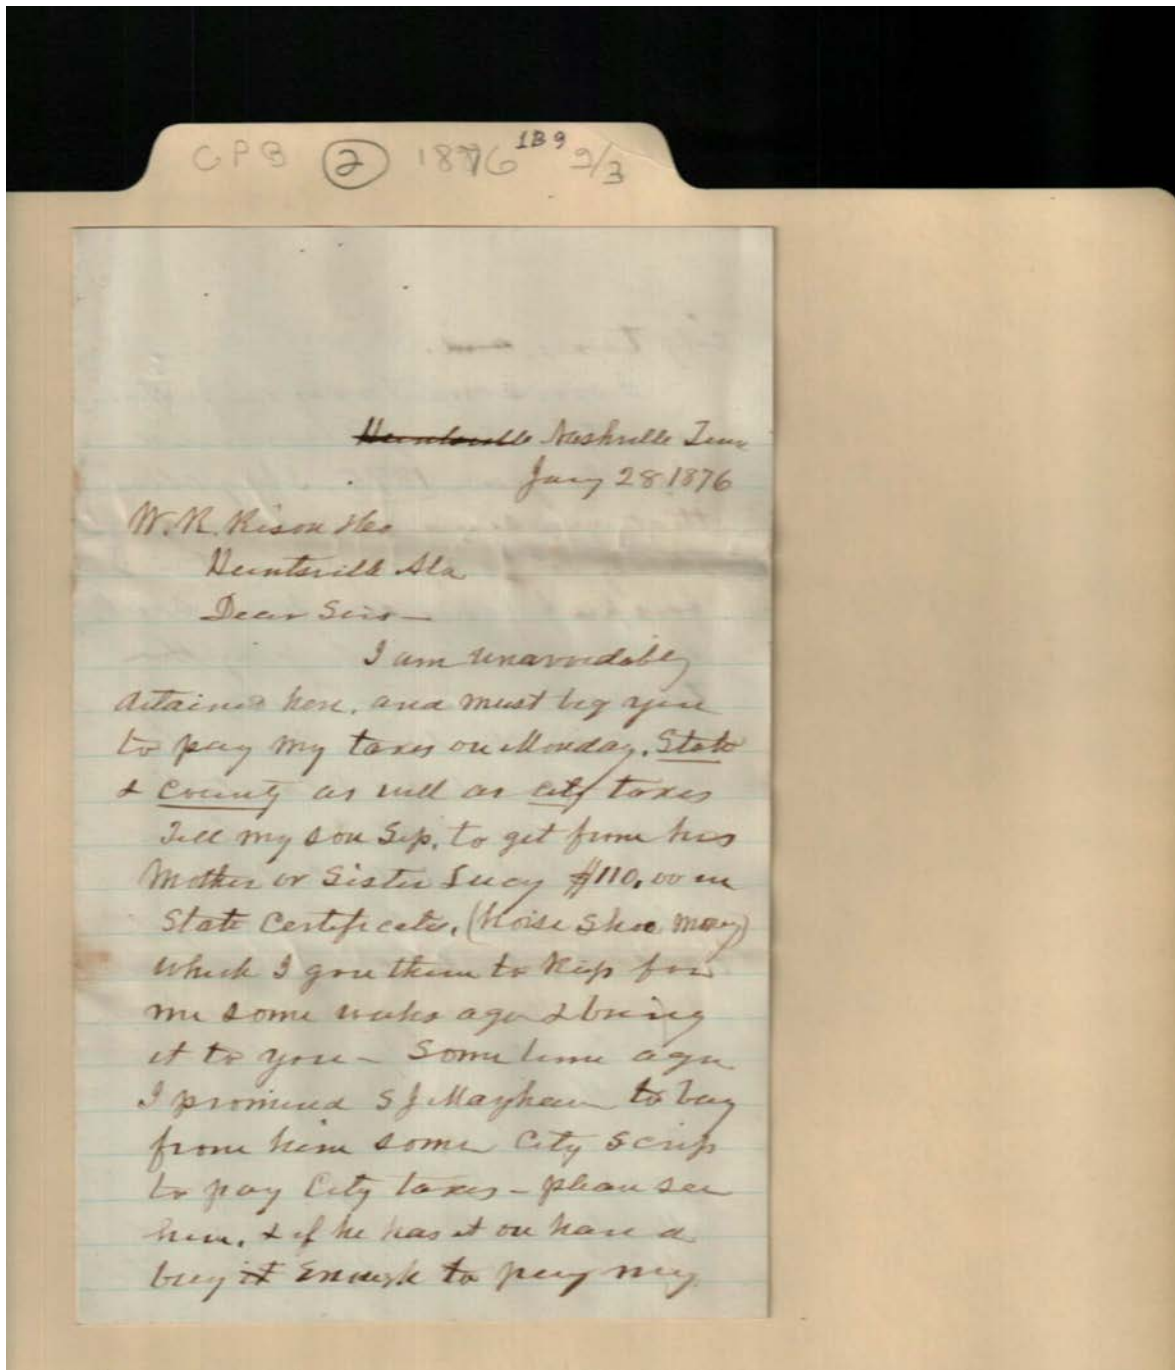 CPB 2 1876 1B9 2/3
Huntsville Nashville Tenn
Jany 28 1876
W. R. Rison
Huntsville Ala
Dear Sir —
I am unavoidably
detained here, and must beg you
to pay my taxes on Monday. State
& County as well as City taxes
Tell my son Sep. to get from his
Mother or Sister Lucy $110.00 in
State Certificates, (horse shoe money)
which I gave them to keep for
me some weeks ago & bring
it to you — Some time ago
I promised S J Mayhew to buy
from him some City Scrip
to pay City taxes — please see
him, & if he has it on hand
buy it Enough to pay my